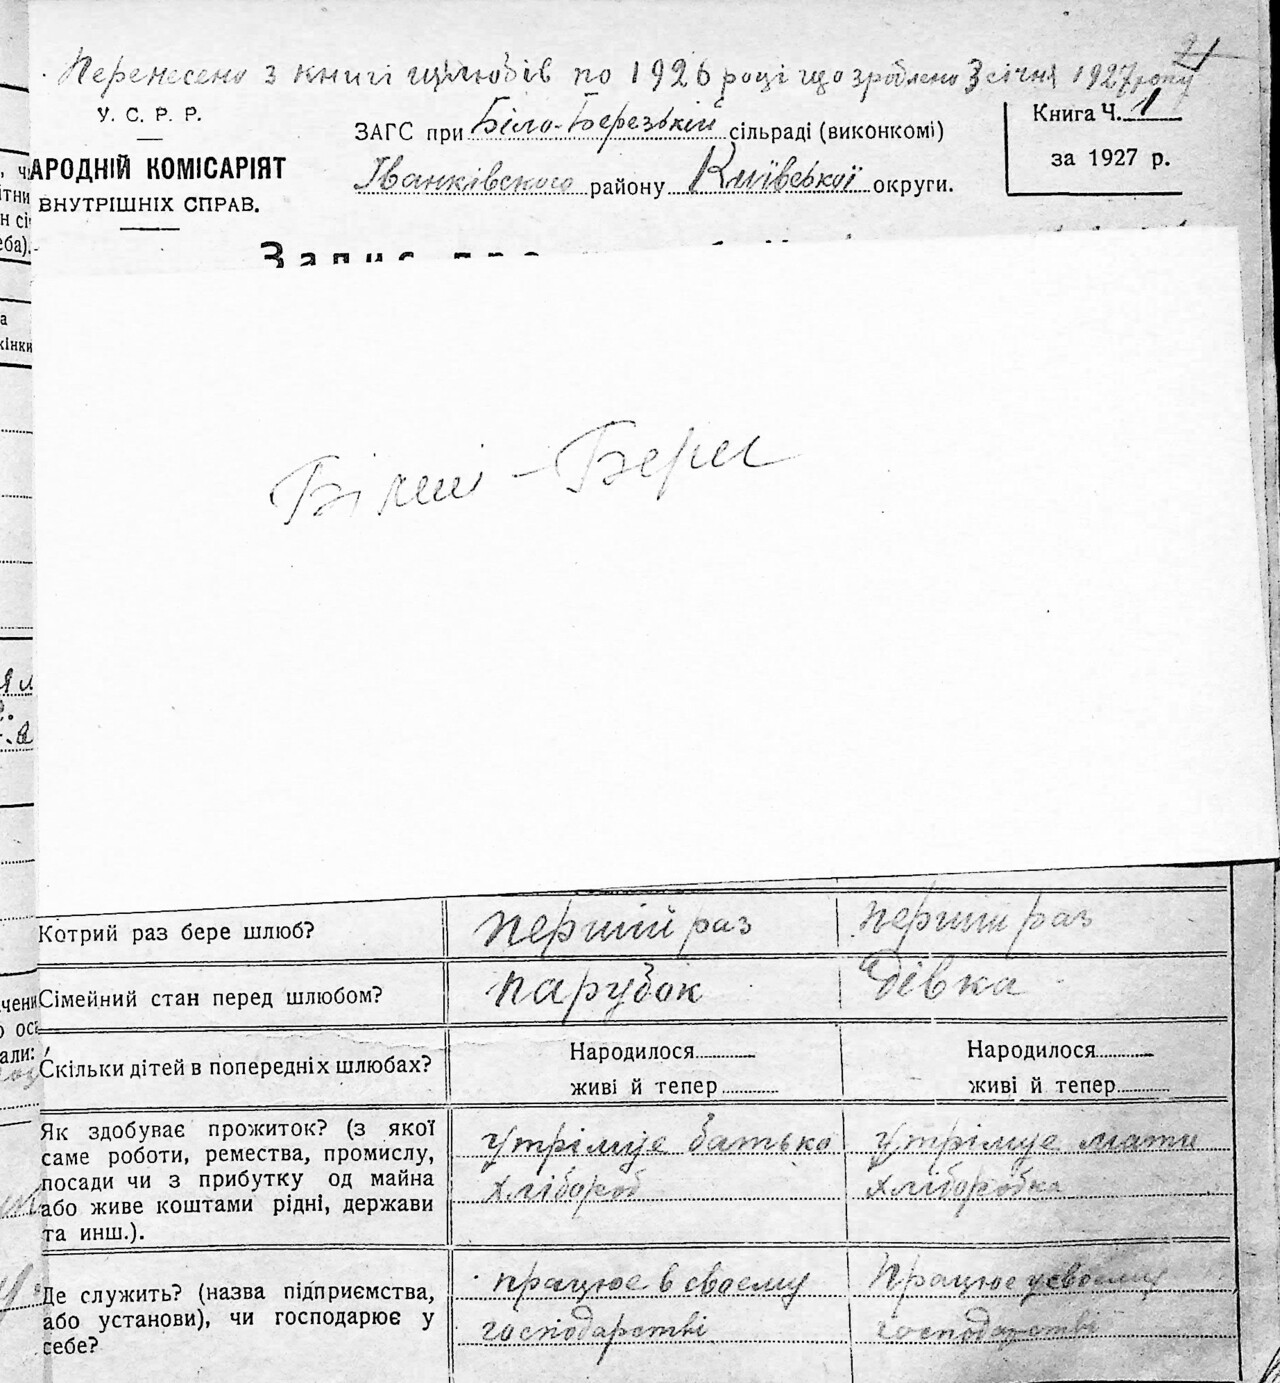 21
Перенесено з книгі щлюбів по 1926 році що зроблено 3 січня 1927 року
У. С. Р. Р.
АРОДНІЙ КОМІСАРІЯТ
ВНУТРІШНІХ СПРАВ.
ЗАГС при Біло-Березькій сільраді (виконкомі)
Іванківского району Київської округи.
Книга Ч. 1
за 1927 р.
Запис про
Білиі - Берег
Котрий раз бере шлюб? перший раз перший раз
Сімейний стан перед шлюбом? парубок дівка
Скільки дітей в попередніх шлюбах? Народилося живі й тепер Народилося живі й тепер
Як здобуває прожиток? (з якої
саме роботи, ремества, промислу,
посади чи з прибутку од майна
або живе коштами рідні, держави
та инш.).
утрімує батько
хлібороб
утрімує мати
хліборобка
Де служить? (назва підприємства,
або установи), чи господарює у
себе?
працює в своему
господарстві
Працює у своему
господарстві